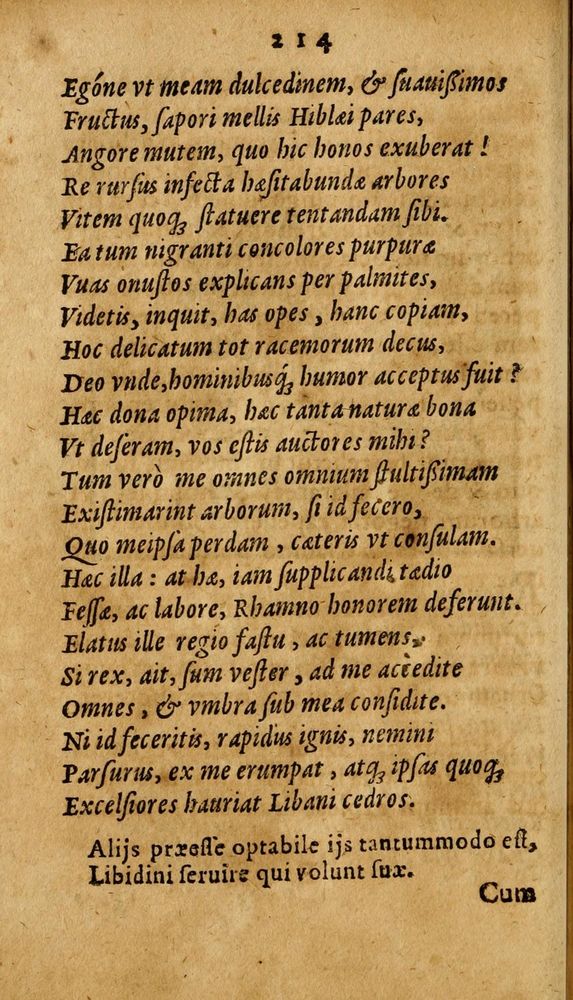 214
Egóne vt meam dulcedinem, & ſuauißimos
Fructus, ſapori mellis Hiblæi pares,
Angore mutem, quo hic honos exuberat!
Re rurſus infecta hæſitabundæ arbores
Vitem quoqꝫ ſtatuere tentandam ſibi.
Ea tum nigranti concolores purpuræ
Vuas onuſtos explicans per palmites,
Videtis, inquit, has opes, hanc copiam,
Hoc delicatum tot racemorum decus,
Deo vnde, hominibusq́ꝫ humor acceptus fuit?
Hæc dona opima, hæc tanta naturæ bona
Vt deſeram, vos eſtis auctores mihi?
Tum verò me omnes omnium ſtultißimam
Exiſtimarint arborum, ſi id fecero,
Quo meipſa perdam, cæteris vt conſulam.
Hæc illa: at hæ, iam ſupplicandi tædio
Feſſæ, ac labore, Rhamno honorem deferunt.
Elatus ille regio faſtu, ac tumens,
Si rex, ait, ſum veſter, ad me accedite
Omnes, & vmbra ſub mea conſidite.
Ni id feceritis, rapidus ignis, nemini
Parſurus, ex me erumpat, atqꝫ ipſas quoqꝫ
Excelſiores hauriat Libani cedros.
Alijs præeſſe optabile ijs tantummodo eſt,
Libidini ſeruire qui volunt ſuæ.
Cum